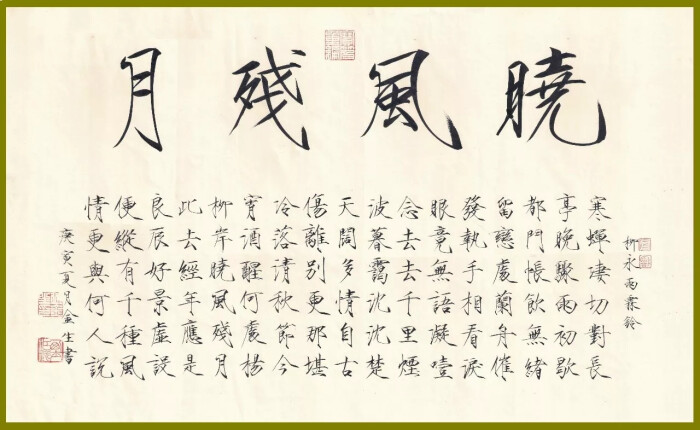 曉風殘月
柳永雨霖鈴
寒蟬淒切對長
亭晚驟雨初歇
都門帳飲無緒
留戀處蘭舟催
發執手相看淚
眼竟無語凝噎
念去去千里煙
波暮靄沈沈楚
天闊多情自古
傷離別更那堪
冷落清秋節今
宵酒醒何處楊
柳岸曉風殘月
此去經年應是
良辰好景虛設
便縱有千種風
情更與何人說
庚寅夏月金生書